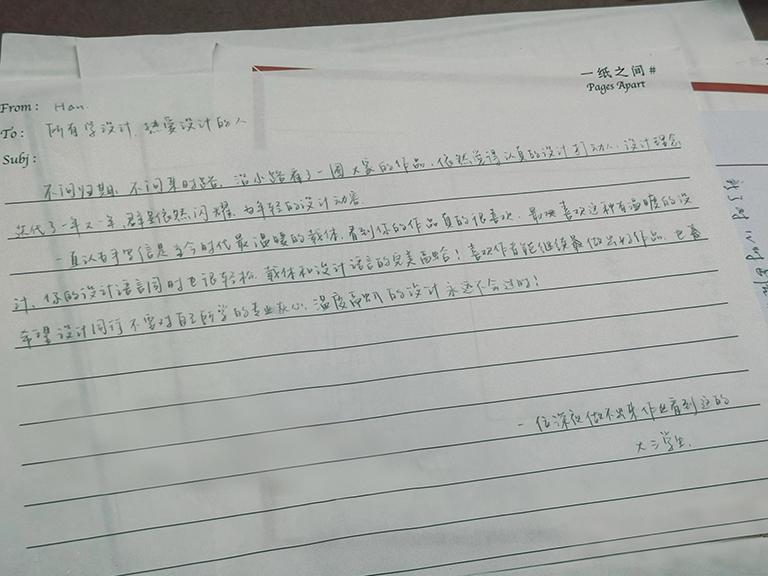 一纸之间#
Pages Apart
From: Han.
To: 所有学设计,热爱设计的人
Subj:
不问归期,不问来时路,沿小路看了一圈大家的作品,依然觉得认真的设计打动人,设计理念
迭代了一年又一年,群星依然闪耀,为年轻的设计动容.
一直认为手写信是当今时代最温暖的载体,看到你的作品真的很喜欢,最喜欢这种有温暖的设
计,你的设计语言同时也很轻松,载体和设计语言的完美融合!喜欢作者能继续做出好作品,也
希望设计同行不要对自己所学的专业灰心,温度融入的设计永远不会过时!
一位深夜做不出来作业看到这的
大三学生.